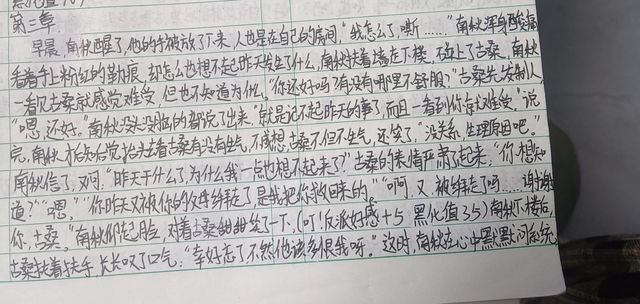 第三章
早晨，南秋醒了，他的手被放了下来，人也是在自己的房间，“我怎么了，嘶……”南秋浑身酸痛
看着手上粉红的勒痕，却怎么也想不起昨天发生了什么，南秋扶着墙走下楼，碰上了古桑，南秋
一看见古桑就感觉难受，但也不知道为什么，“你还好吗？有没有哪里不舒服？”古桑先发制人
“嗯，还好。”南秋没头没脑的都说了出来，“就是记不起昨天的事了而且一看到你就难受。”说
完，南秋后知后觉，抬头去看古桑有没有生气，不成想，古桑不但不生气，还笑了，“没关系，生理原因吧。”
南秋信了，又问：“昨天干什么了，为什么我一点也想不起来了？”古桑的表情严肃了起来，“你，想知
道？”“嗯，”“你昨天又被你的父母绑走了，是我把你救回来的。”“啊，又被绑走了吗……谢谢
你，古桑。”南秋仰起脸，对着古桑甜甜笑了一下，(叮！反派好感+5 黑化值35)南秋下楼后，
古桑扶着扶手，长长叹了口气：“幸好忘了，不然他该多恨我呀。”这时，南秋在心中默默问系统